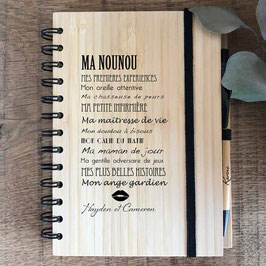 MA NOUNOU
MES PREMIERES EXPERIENCES
Mon oreille attentive
Ma chasseuse de peurs
MA PETITE INFIRMIÈRE
Ma maîtresse de vie
Mon doudou à bisous
MON CALIN DU MATIN
Ma maman de jour
Ma gentille adversaire de jeux
MES PLUS BELLES HISTOIRES
Mon ange gardien
Hayden et Cameron